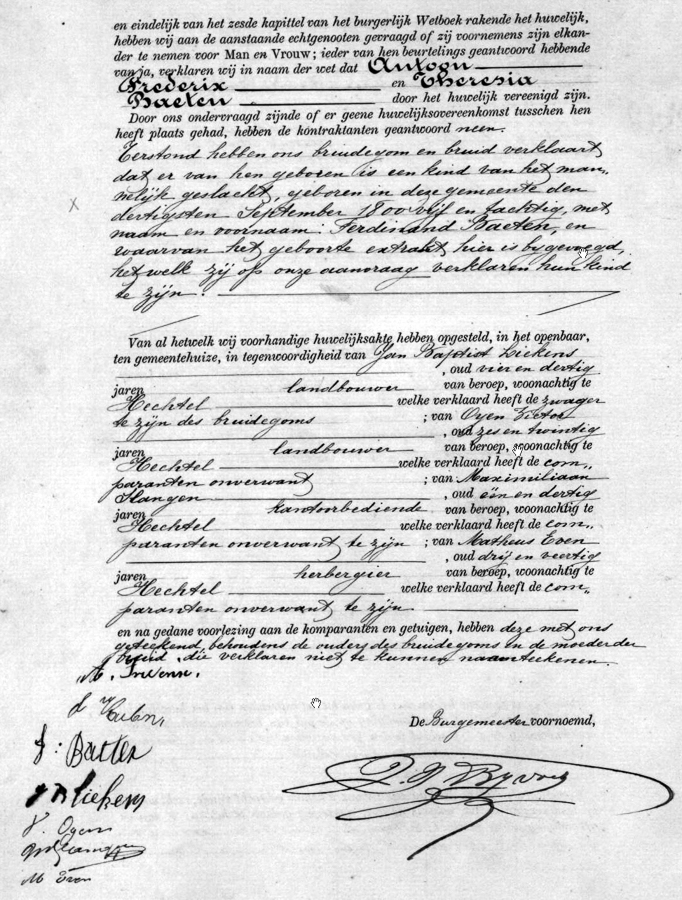 en eindelijk van het zesde kapittel van het burgerlijk Wetboek rakende het huwelijk,
hebben wij aan de aanstaande echtgenooten gevraagd of zij voornemens zijn elkan-
der te nemen voor Man en Vrouw; ieder van hen beurtelings geantwoord hebbende
van ja, verklaren wij in naam der wet dat Antoon
Frederix en Theresia
Baeten door het huwelijk vereenigd zijn.
Door ons ondervraagd zijnde of er geene huwelijksovereenkomst tusschen hen
heeft plaats gehad, hebben de kontraktanten geantwoord neen.
Terstond hebben ons bruidegom en bruid verklaart
dat er van hen geboren is een kind van het man„
nelijk geslacht, geboren in deze gemeente den
dertigsten September 1800 vijf en tachtig, met
naam en voornaam: Ferdinand Baeten, en
waarvan het geboorte extrakt hier is bygevoegd,
het welk zij op onze aanvraag verklaren hun kind
te zijn.
Van al hetwelk wij voorhandige huwelijksakte hebben opgesteld, in het openbaar,
ten gemeentehuize, in tegenwoordigheid van Jan Baptist Liekens
, oud vier en dertig
jaren landbouwer van beroep, woonachtig te
Hechtel welke verklaard heeft de zwager
te zijn des bruidegoms ; van Oyen Victor
, oud zes en twintig
jaren landbouwer van beroep, woonachtig te
Hechtel welke verklaard heeft de com„
paranten onverwant ; van Maximiliaan
Slangen , oud één en dertig
jaren kantoorbediende van beroep, woonachtig te
Hechtel welke verklaard heeft de com„
paranten onverwant te zijn ; van Matheus Even
, oud drij en veertig
jaren herbergier van beroep, woonachtig te
Hechtel welke verklaard heeft de com„
paranten onverwant te zijn.
en na gedane voorlezing aan de komparanten en getuigen, hebben deze met ons
geteekend, behoudens de ouders des bruidegoms en de moeder der
bruid, die verklaren niet te kunnen naamteekenen.
De Burgemeester voornoemd,
J: Baeten
J B Liekens
V. Oyen
M Even